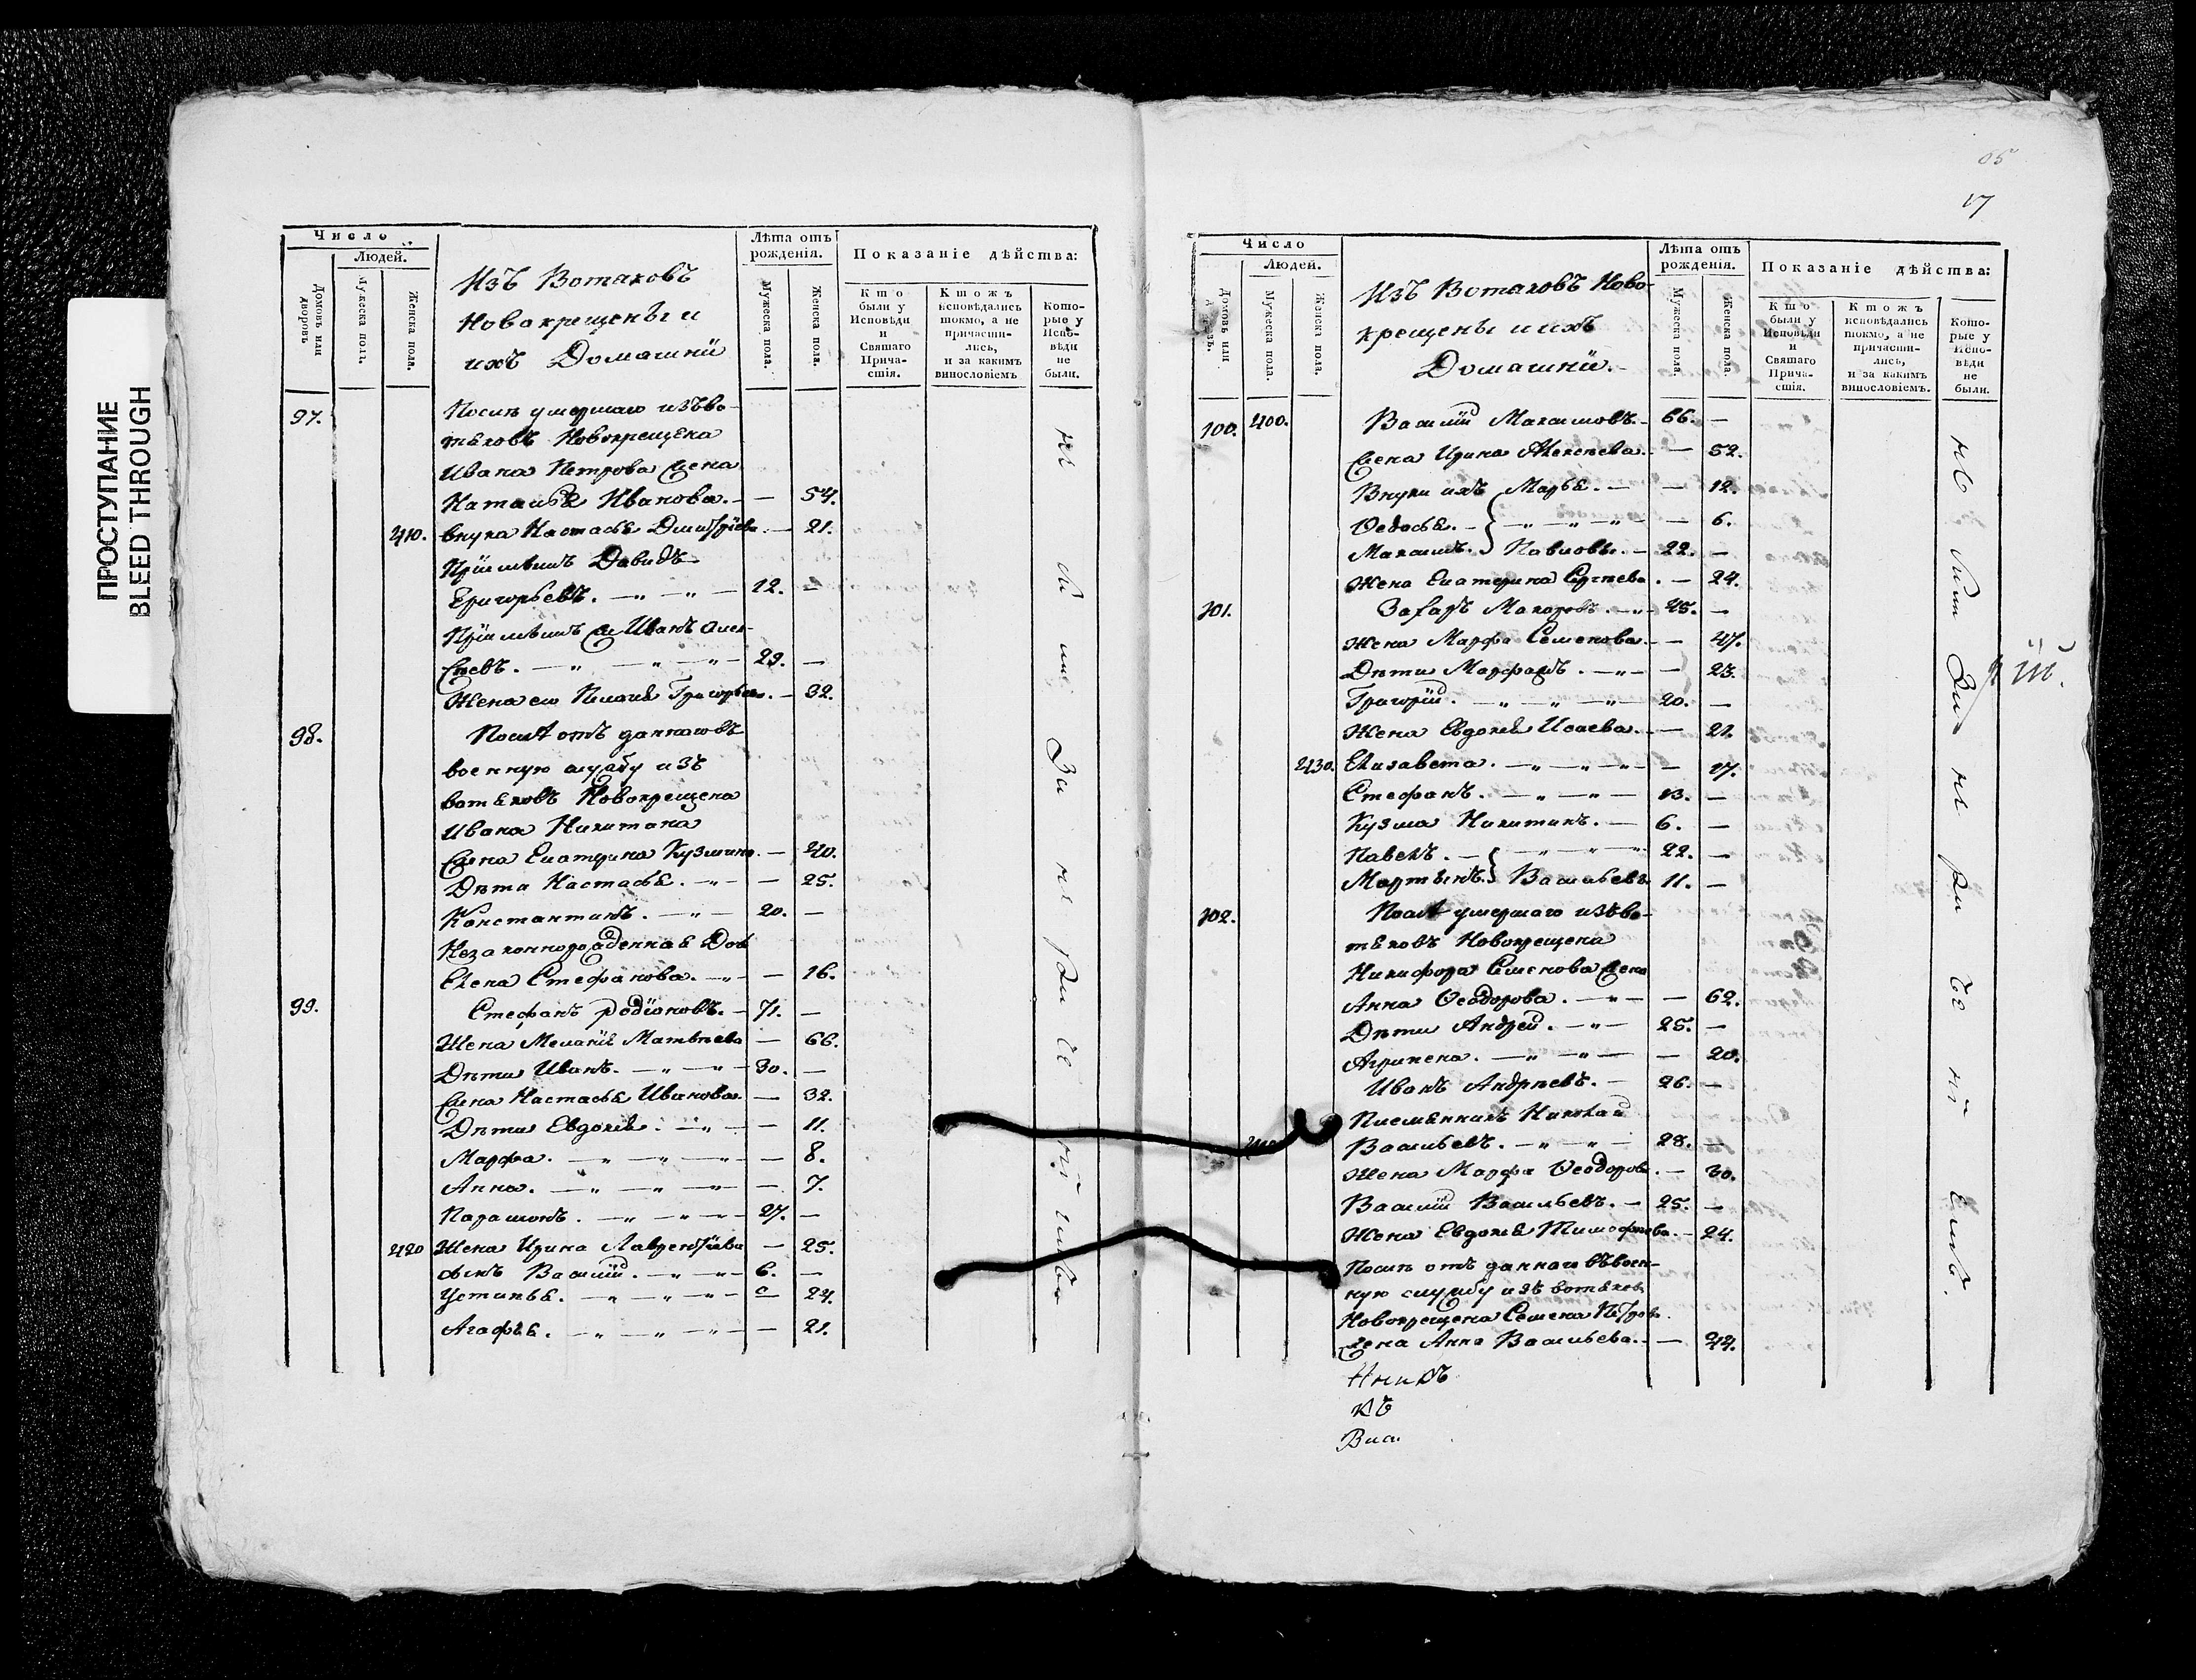 ПРОСТУПАНИЕ
BLEED THROUGH
Число
Людей.
Домовъ или дворовъ
Мужеска полъ.
Женска пола.
Изъ Вотяковъ
Новокрещены и
ихъ Домашнїи
Лѣта отъ рожденія.
Мужеска пола.
Женска пола.
Показаніе дѣйства:
Кто были у Исповѣди и Святаго Причастія.
Ктожъ исповѣдались токмо, а не причастились, и за какимъ винословіемъ
Которые у Исповѣди не были.
97. Послѣ умершаго изъ во-
тяковъ Новокрещена
Ивана Петрова жена
Наталья Иванова. — 54.
410. внука Настасья Дмитріева — 21.
Пріимышъ Давидъ
Григорьевъ. — 12. —
Пріимышъ Иванъ Алек-
сѣевъ. — 29. —
Жена его Пелагея Григорьева. — 32.
98. Послѣ отъ даннаго въ
военную службу изъ
вотяковъ Новокрещена
Ивана Никитина
жена Екатерина Кузмина. — 40.
Дѣти Настасья. — 25.
Константинъ. — 20. —
Незаконнорожденная Дочь
Елена Стефанова. — 16.
99. Стефанъ Родіоновъ. — 71. —
Жена Меланія Матвѣева — 66.
Дѣти Иванъ. — 30. —
жена Настасья Иванова. — 32.
Дѣти Евдокія. — 11.
Марфа. — 8.
Анна. — 7.
Парамонъ. — 27. —
420 Жена Ирина Лаврентіева — 25.
сынъ Василій. — 6. —
Устинья. — 24.
Агафья. — 21.
05
17
Число
Людей.
Домовъ или
Мужеска пола.
Женска пола.
Изъ Вотяковъ Ново-
крещены и ихъ
Домашнїи.
Лѣта отъ рожденія.
Мужеска пола.
Женска пола.
Показаніе дѣйства:
Кто были у Исповѣди и Святаго Причастія.
Ктожъ исповѣдались токмо, а не причастились, и за какимъ винословіемъ.
Которые у Исповѣди не были.
100. 400. Василій Максимовъ. 66. —
жена Ирина Алексѣева. — 52.
Внуки ихъ Марья. — 12.
Ѳедосья. — 6.
Максимъ. Павловы. — 22. —
Жена Екатерина Сергѣева. — 24.
101. Захаръ Макаровъ. 45. —
Жена Марфа Семенова. — 47.
Дѣти — 23.
Григорій. — 20. —
Жена Евдокія Исаева. — 21.
430. Елизавета. — 17.
Стефанъ. — 13. —
Кузма Никитинъ. — 6. —
Павелъ. — 22. —
Мартынъ. Васильевы 11. —
102. Послѣ умершаго изъ во-
тяковъ Новокрещена
Никифора Семенова жена
Анна Ѳеодорова. — 62.
Дѣти Андрей. — 25. —
Агрипена. — 20.
Иванъ Андрѣевъ. — 26. —
Николай
Васильевъ. — 28. —
Жена Марфа Ѳеодорова. — 30.
Василій Васильевъ. — 25. —
Жена Евдокія Тимофѣева. — 24.
Послѣ отъ даннаго въ воен-
ную службу изъ вотяковъ
Новокрещена Семена Петрова
жена Анна Васильева. — 44.
къ